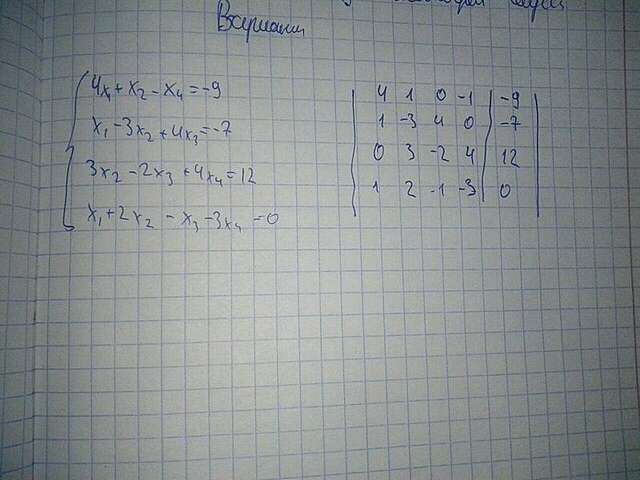 Вариант
4x₁ + x₂ - x₄ = -9
x₁ - 3x₂ + 4x₃ = -7
3x₂ - 2x₃ + 4x₄ = 12
x₁ + 2x₂ - x₃ - 3x₄ = 0
4 1 0 -1 | -9
1 -3 4 0 | -7
0 3 -2 4 | 12
1 2 -1 -3 | 0